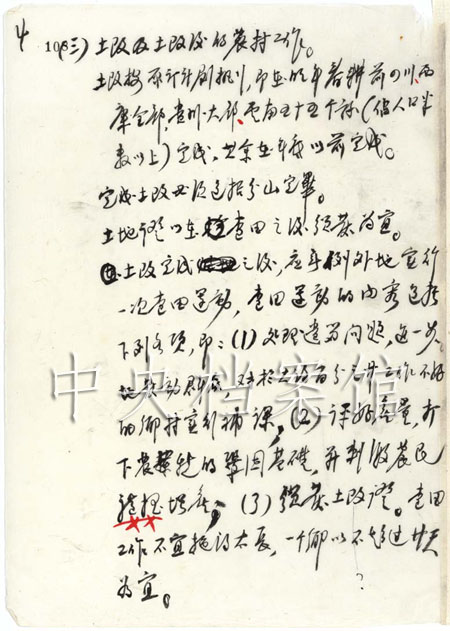 4
108(三)土改及土改后的农村工作。
土改按原订计划执行，即在明年春耕前四川、西
康全部，贵州大部，云南五十五个县（占人口半
数以上）完成，其余在年底以前完成。
完成土改必须包括分山完毕。
土地证以在查田之后颁发为宜。
土改完成之后，应毫无例外地实行
一次查田运动，查田运动的内容包括
下列各项，即：(1)处理遗留问题，进一步
发动群众，对于土改百分之廿工作不好
的乡村实行补课，(2)评好产量，打
下农业税的巩固基础，并刺激农民
增产；(3)颁发土改证。查田
工作不宜拖得太长，一个乡以不超过廿天
为宜。
?
中央档案馆